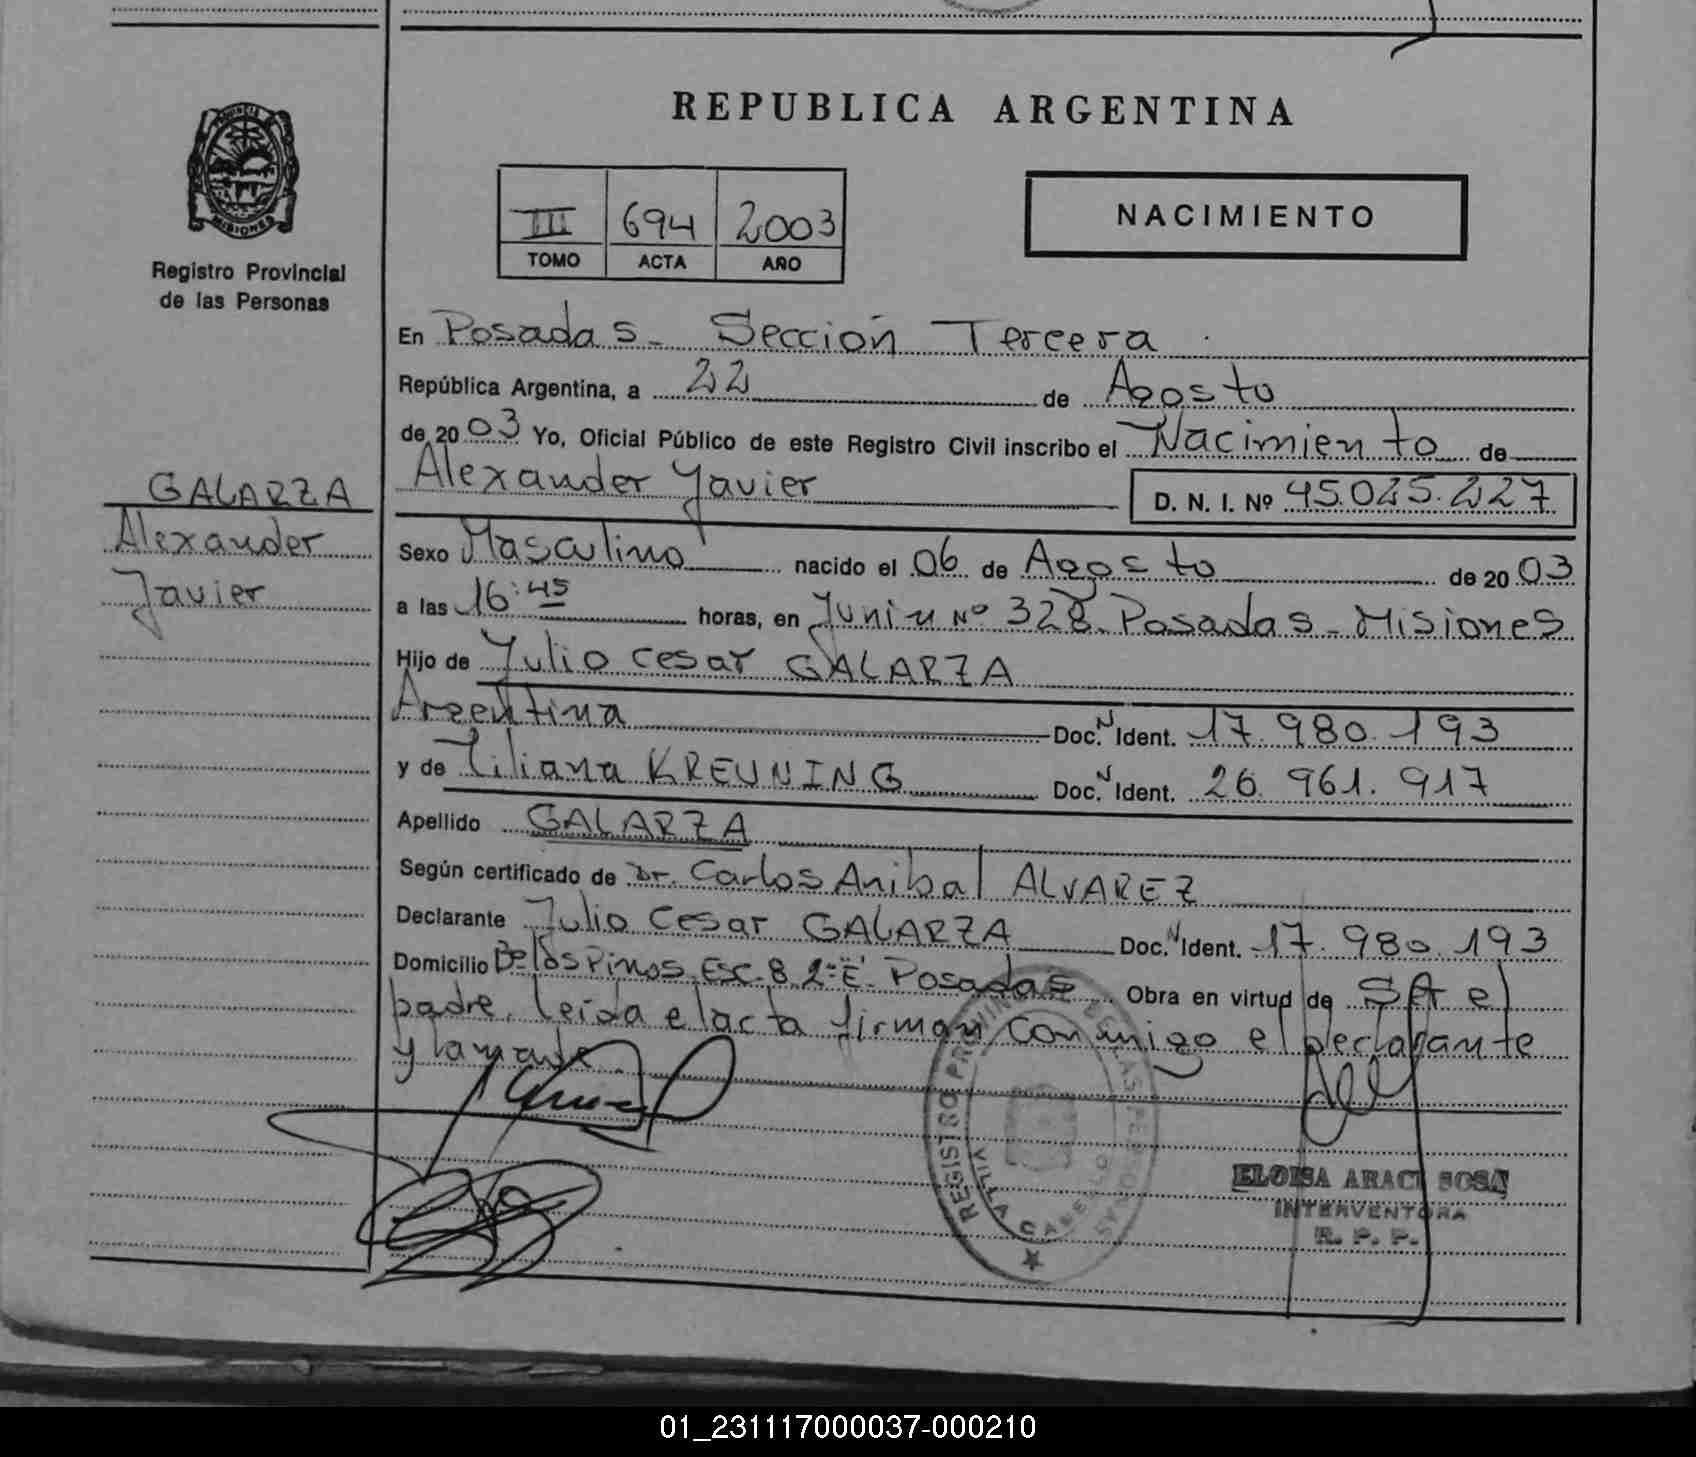 REPUBLICA ARGENTINA
PROVINCIA
MISIONES
Registro Provincial
de las Personas
III 694 2003
TOMO ACTA AÑO
NACIMIENTO
En Posadas - Sección Tercera
República Argentina, a 22 de Agosto
de 20 03 Yo, Oficial Público de este Registro Civil inscribo el Nacimiento de
Alexander Javier D. N. I. Nº 45.025.227
GALARZA
Alexander
Javier
Sexo Masculino nacido el 06 de Agosto de 20 03
a las 16:45 horas, en Junin Nº 328. Posadas - Misiones
Hijo de Julio Cesar GALARZA
Argentina Doc. N Ident. 17.980.193
y de Liliana KREUNING Doc. N Ident. 26.961.917
Apellido GALARZA
Según certificado de Dr. Carlos Anibal ALVAREZ
Declarante Julio Cesar GALARZA Doc. N Ident. 17.980.193
Domicilio Bº Los Pinos Esc. 8 2º "E" Posadas Obra en virtud de Ser el
padre. Leida el acta firman conmigo el Declarante
y la madre
REGISTRO PROVINCIAL DE LAS PERSONAS
ELOISA ARACI SOSA
INTERVENTORA
R. P. P.
01_231117000037-000210